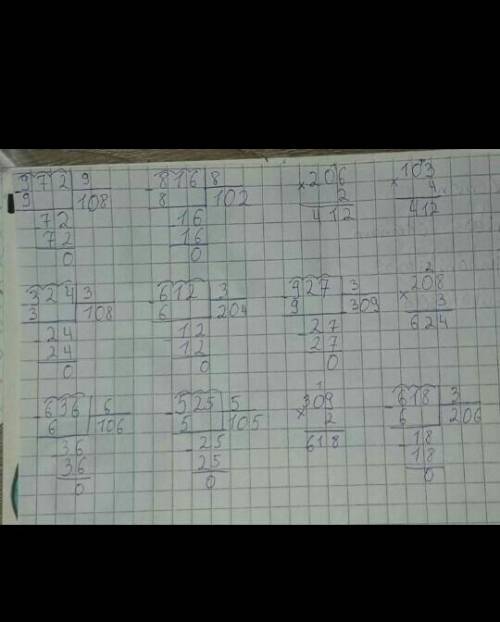 972 9
9 108
72
72
0
816 8
8 102
16
16
0
×206
2
412
103
× 4
412
324 3
3 108
24
24
0
612 3
6 204
12
12
0
927 3
9 309
27
27
0
2
×208
3
624
636 6
6 106
36
36
0
525 5
5 105
25
25
0
1
×309
2
618
618 3
6 206
18
18
0